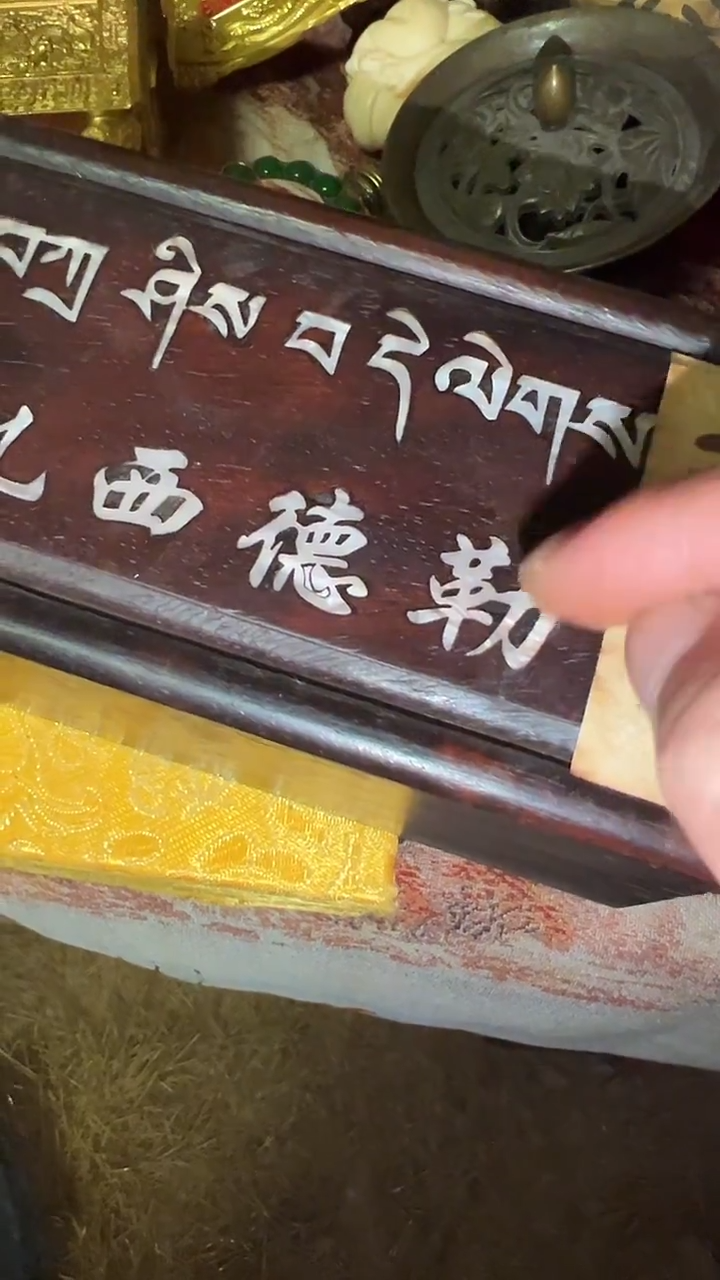 བཀྲ ཤིས བ དེ ལེགས
西德勒